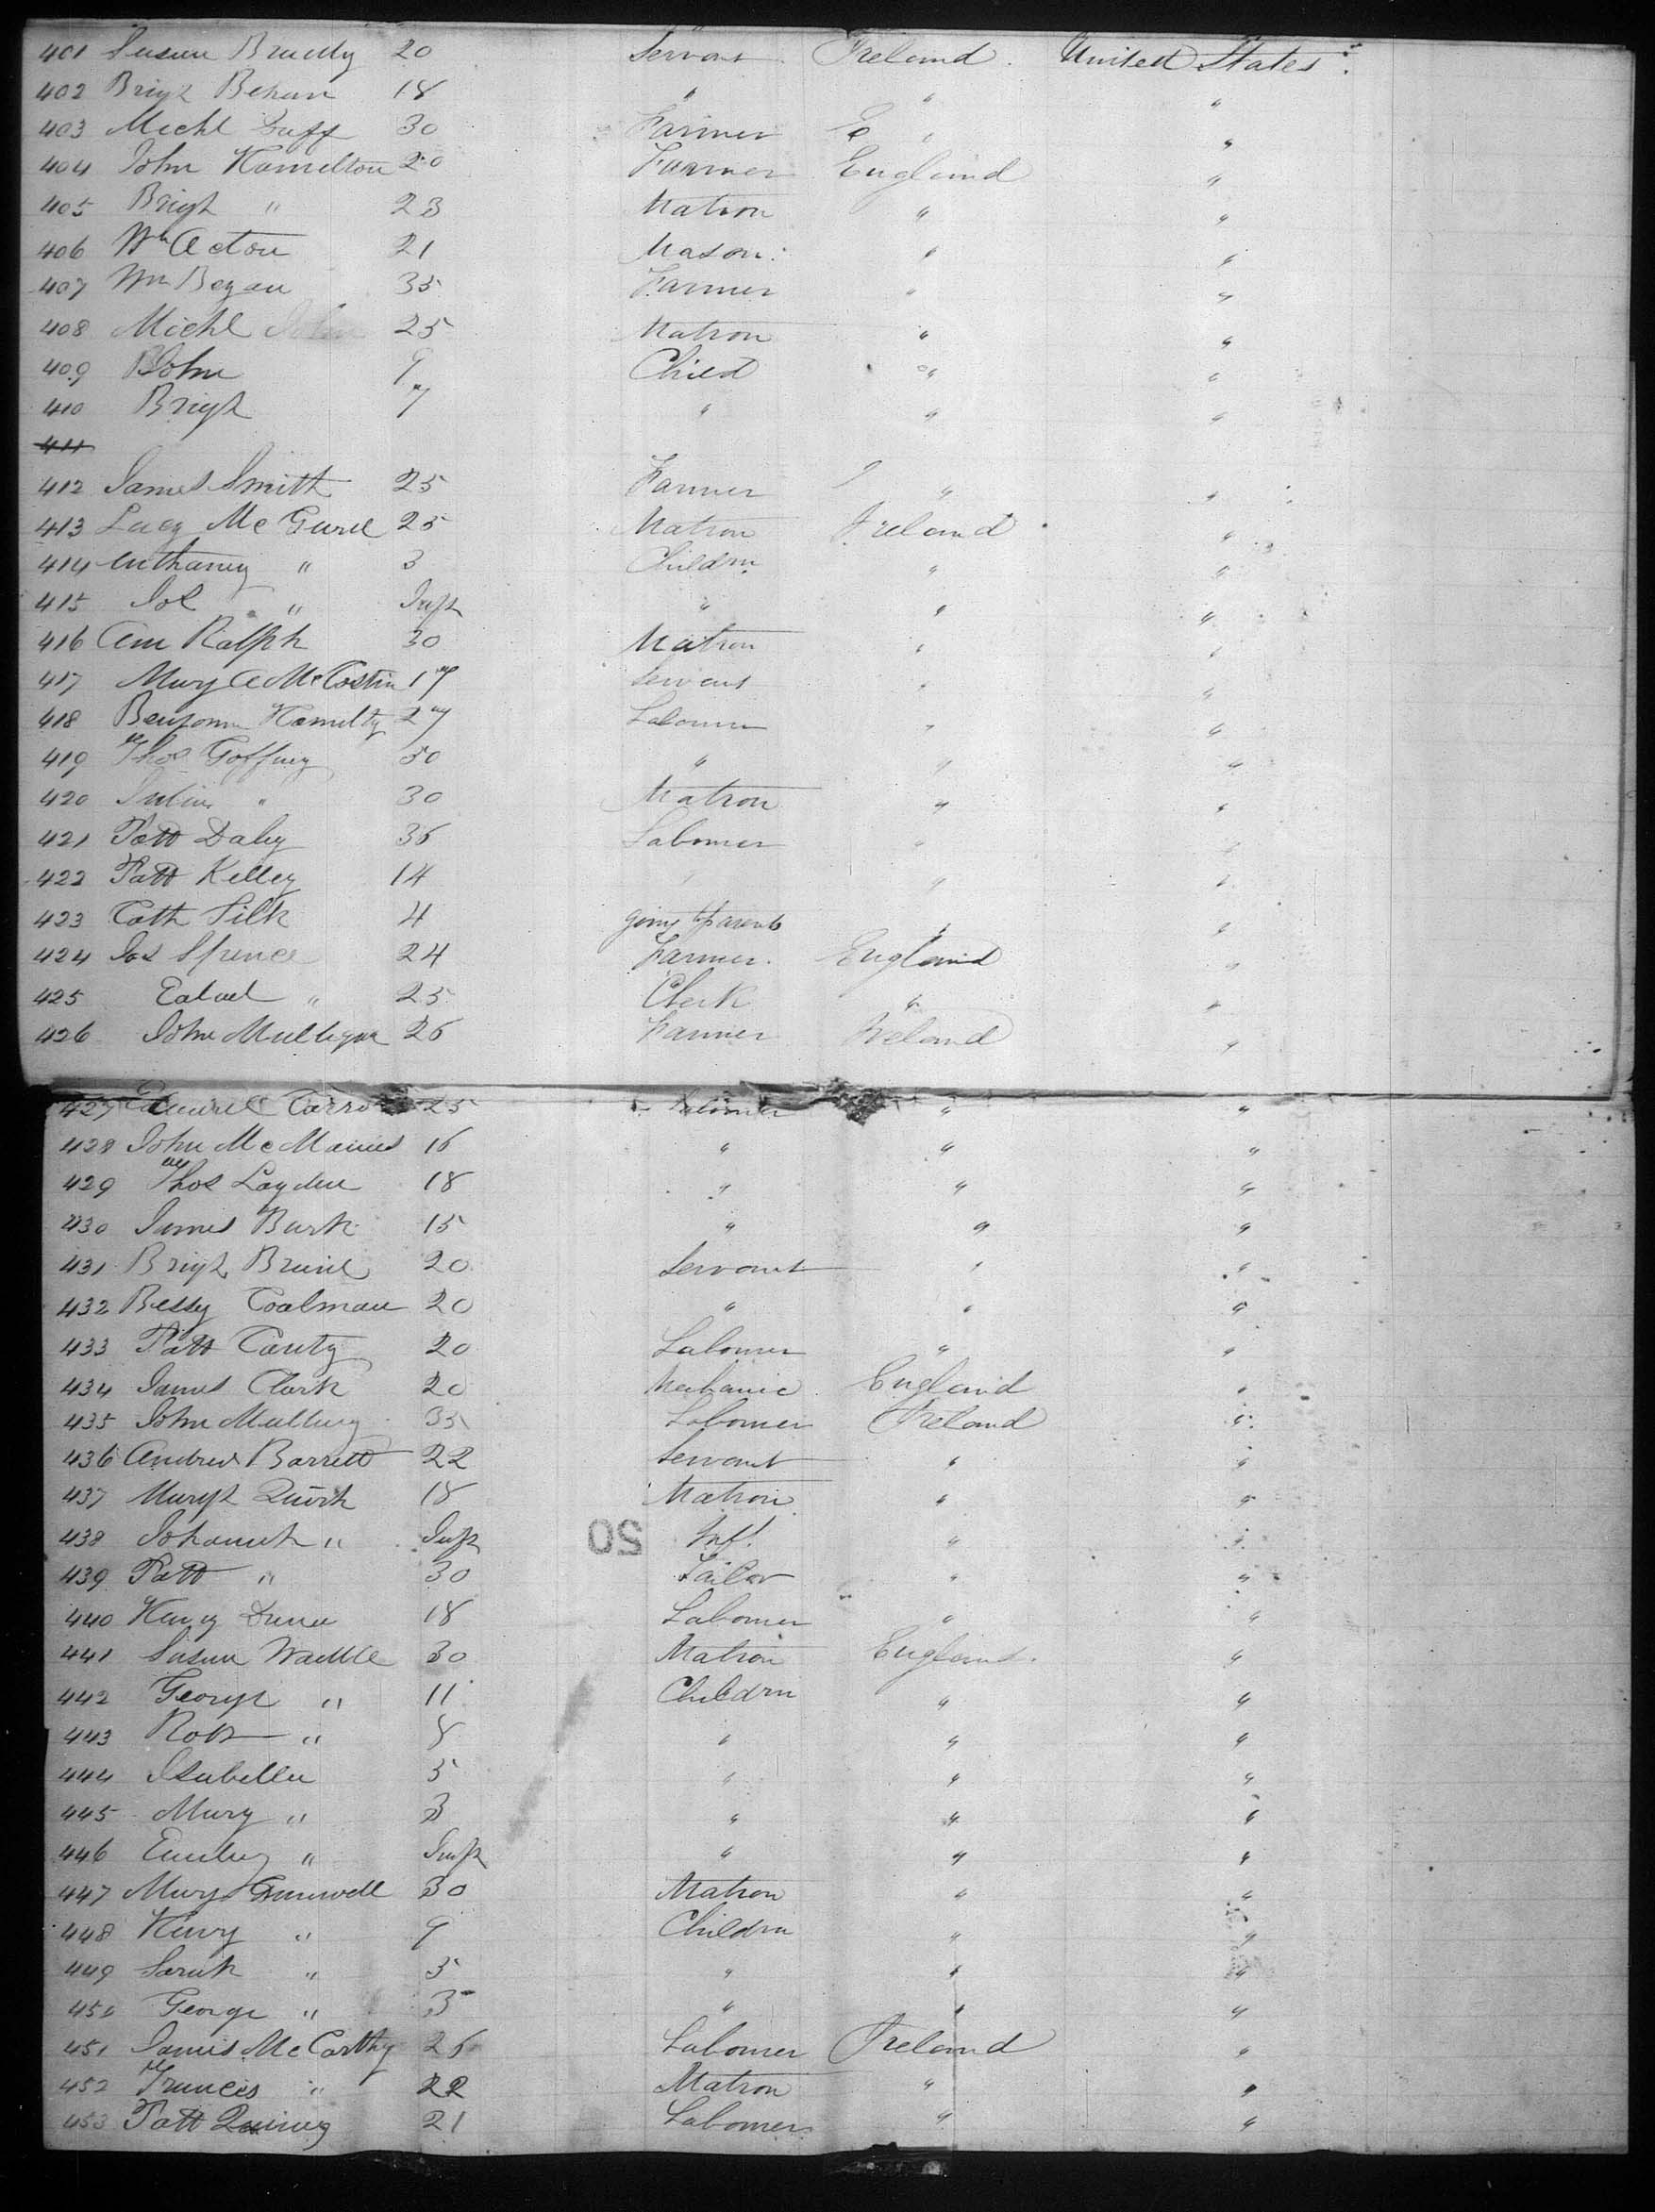 401 Susan Bradly 20 Servant Ireland United States
402 Brigt Behan 18 " " "
403 Michl Duff 30 Farmer " "
404 John Hamelton 20 Farmer England "
405 Brigt " 23 Matron " "
406 Wm Acton 21 Mason " "
407 Wm Began 35 Farmer " "
408 Michl 25 Matron " "
409 John 9 Child " "
410 Brigt 7 " " "
411
412 James Smith 25 Farmer " "
413 Lucy Mc Gurel 25 Matron Ireland "
414 Anthaney " 3 Childrn " "
415 Jos " Inft " " "
416 Ann Ralph 30 Matron " "
417 Mary A McCostin 17 Servant " "
418 Benjamn Hamilty 27 Labourer " "
419 Thos Goffney 30 " " "
420 Julia " 30 Matron " "
421 Patt Daley 36 Labourer " "
422 Patt Kelley 14 " " "
423 Cath Silk 4 going to parents " "
424 Jos Spence 24 Farmer England "
425 " 25 Clerk " "
426 John Mulligan 26 Farmer Ireland "
427 Edward 25 Labourer " "
428 John Mc Manus 16 " " "
429 Thos Layden 18 " " "
430 James Burk 15 " " "
431 Brigt 20 Servant " "
432 Bessy Coalman 20 " " "
433 Patt Canty 20 Labourer " "
434 James Clark 20 Mechanic England "
435 John Mulluny 35 Labourer Ireland "
436 Andrew Barrett 22 Servant " "
437 Margt Quirk 18 Matron " "
438 Johannah " Inft Inft. " "
50
439 Patt " 30 Tailor " "
440 Henry Dunn 18 Labourer " "
441 Susan Waddle 30 Matron England "
442 George " 11 Childrn " "
443 Robt " 8 " " "
444 Isabella 5 " " "
445 Mary " 3 " " "
446 Emiley " Inft " " "
447 Mary Gunwell 30 Matron " "
448 Henry " 9 Childrn " "
449 Sarah " 5 " " "
450 George " 3 " " "
451 James McCarthy 26 Labourer Ireland "
452 Frances " 22 Matron " "
453 Patt 21 Labourer " "